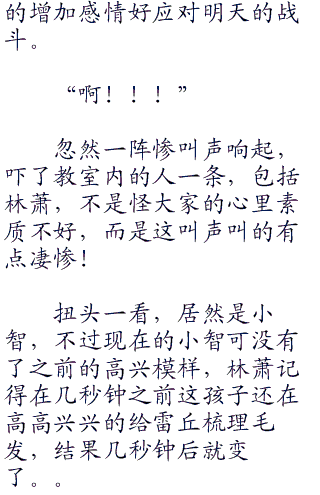 的增加感情好应对明天的战
斗。
“啊！！！”
忽然一阵惨叫声响起，
吓了教室内的人一条，包括
林萧，不是怪大家的心里素
质不好，而是这叫声叫的有
点凄惨！
扭头一看，居然是小
智，不过现在的小智可没有
了之前的高兴模样，林萧记
得在几秒钟之前这孩子还在
高高兴兴的给雷丘梳理毛
发，结果几秒钟后就变
了。。